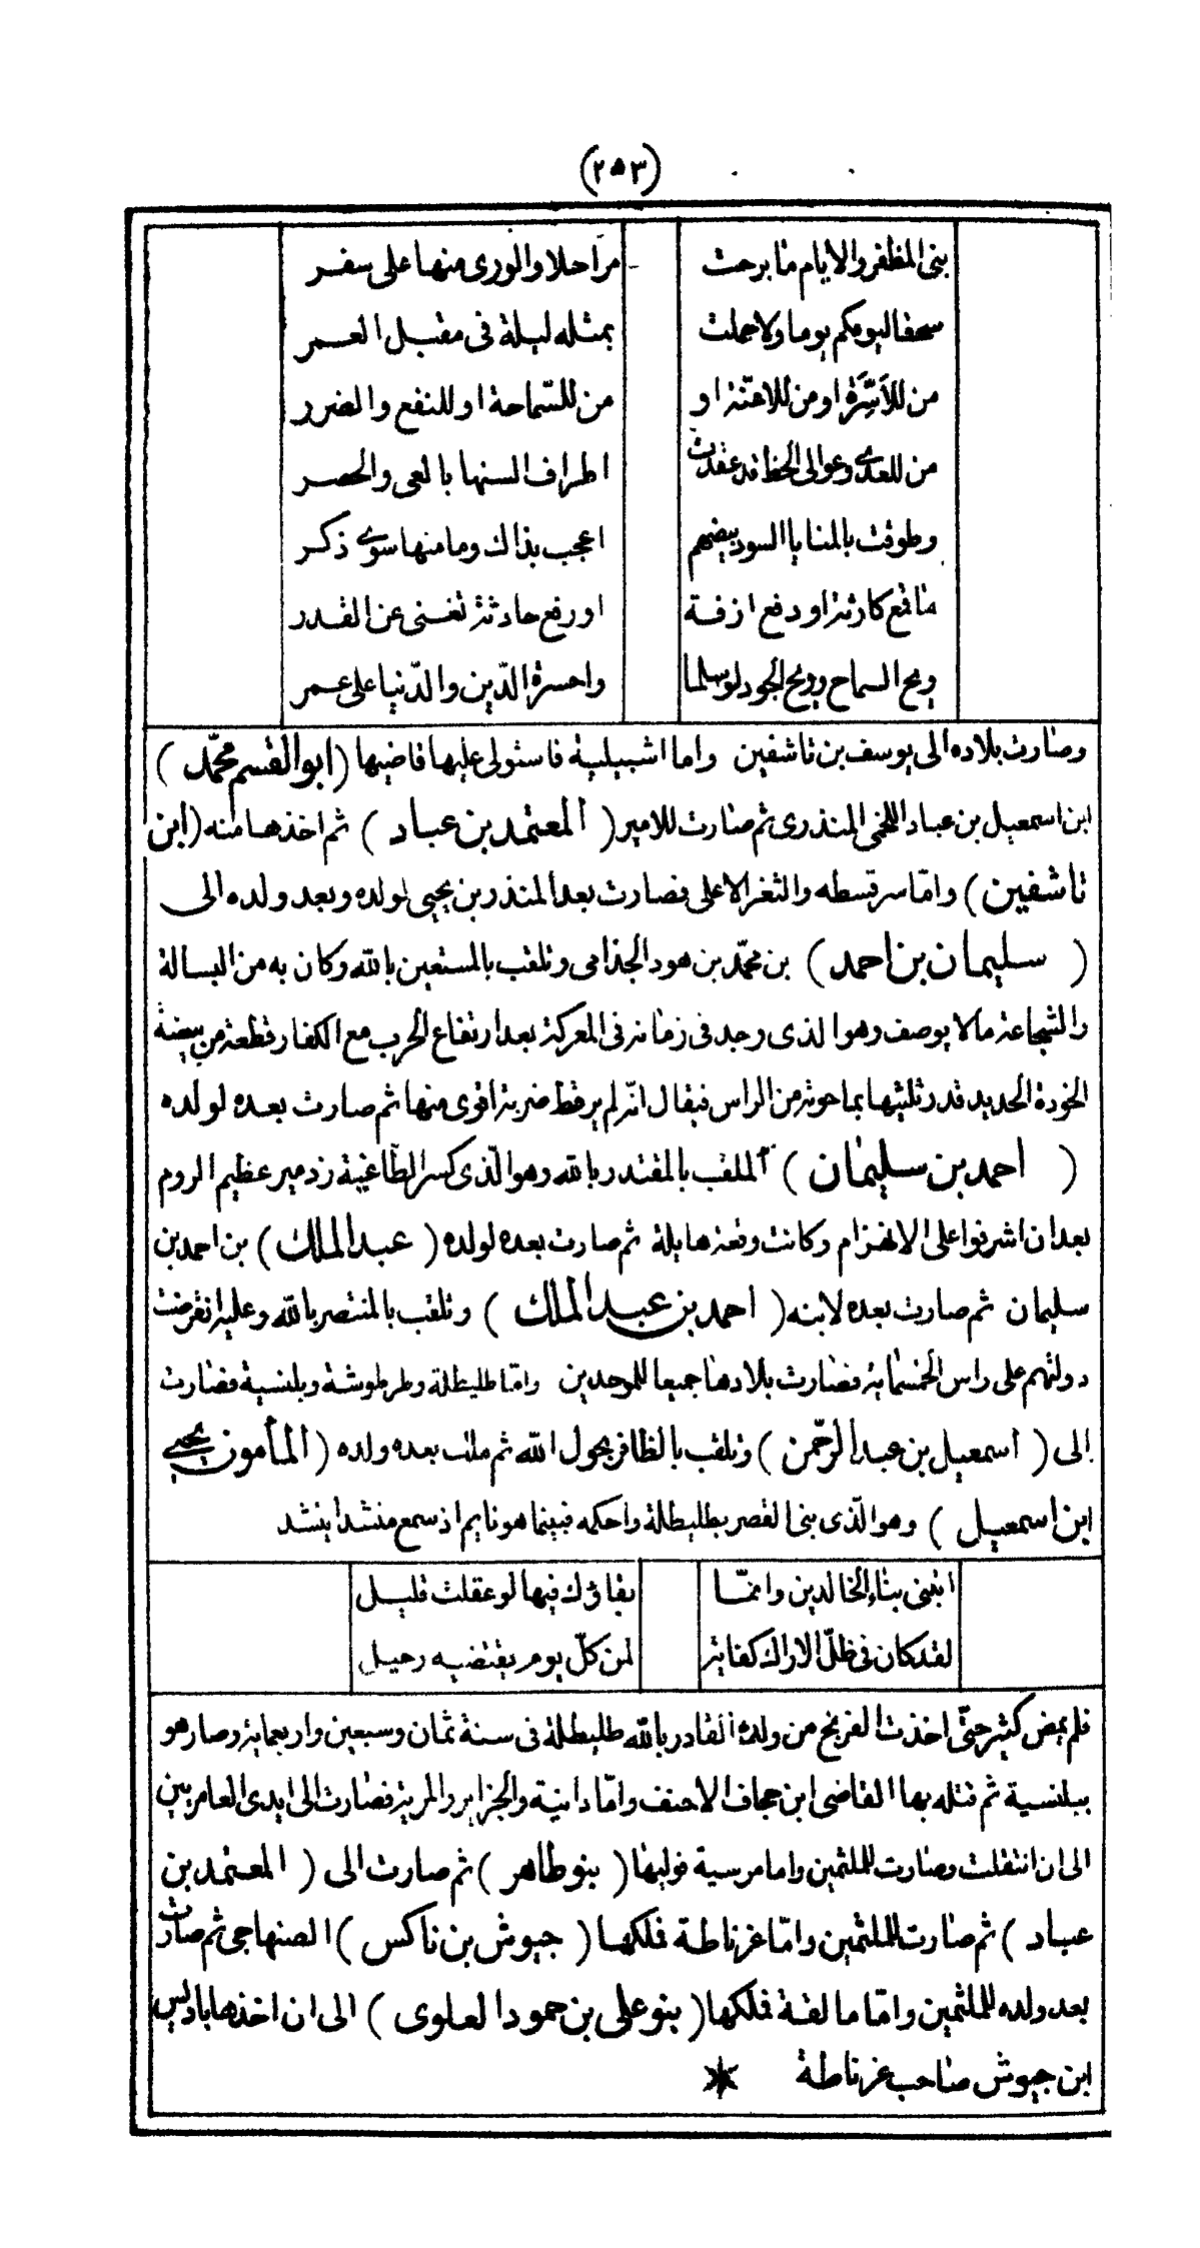 (٢٥٣)
بنى المظفر والايام ما برحت مراحلا والورى منها على سفر
سحقا ليومكم يوما ولا حملت بمثله ليلة فى مقبل العمر
من للأسرّة او من للاعنّة او من للسّماحة او للنفع والضرر
من للعدى وعوالى الخط قد عقدت اطراف السنها بالعى والحصر
وطوقت بالمنايا السود بيضهم اعجب بذاك وما منها سوى ذكر
ما فع كارثة او دفع ازفة او رفع حادثة تغنى عن القدر
ويح السماح وويح الجود لو سلما واحسرة الدّين والدّنيا على عمر
وصارت بلاده الى يوسف بن تاشفين واما اشبيلية فاستولى عليها قاضيها (ابو القسم محمّد)
ابن اسمعيل بن عباد اللخمى المنذرى ثم صارت للامير (المعتمد بن عباد) ثم اخذها منه (ابن
تاشفين) وامّا سرقسطه والثغر الاعلى فصارت بعد المنذر بن يحيى لولده وبعد ولده الى
(سليمان بن احمد) بن محمّد بن هود الجذامى وتلقب بالمستعين بالله وكان به من البسالة
والشجاعة مالا يوصف وهو الذى وجد فى زمانه فى المعركة بعد ارتفاع الحرب مع الكفار قطعة من بيضة
الخودة الحديد قدر ثلثيها بما حوته من الراس فيقال انّه لم ير قط ضربة اقوى منها ثم صارت بعده لولده
(احمد بن سليمان) الملقب بالمقتدر بالله وهو الّذى كسر الطّاغية زدمير عظيم الروم
بعد ان اشرفوا على الانهزام وكانت وقعة هايلة ثم صارت بعده لولده (عبد الملك) بن احمد بن
سليمان ثم صارت بعده لابنه (احمد بن عبد الملك) وتلقب بالمنتصر بالله وعليه انقرضت
دولتهم على راس الخمسمائة فصارت بلادها جميعا للموحدين وامّا طليطلة وطرطوشة وبلنسية فصارت
الى (اسمعيل بن عبد الرحمن) وتلقب بالظافر بحول الله ثم ملك بعده ولده (المأمون يحيى
ابن اسمعيل) وهو الّذى بنى القصر بطليطلة واحكمه فبينما هو نايم اذ سمع منشدا ينشد
اتبنى بناء الخالدين وانمّا بقاؤك فيها لو عقلت قليل
لقد كان فى ظلّ الاراك كفاية لمن كلّ يوم يقتضيه رحيل
فلم يمض كثير حتّى اخذت الفرنج من ولده القادر بالله طليطلة فى سنة ثمان وسبعين واربعماية وصار هو
ببلنسية ثم قتله بها القاضى ابن جحاف الاحنف وامّا دانية والجزاير والمرية فصارت الى ايدى العامريين
الى ان انتقلت وصارت للملثمين واما مرسية فوليها (بنو طاهر) ثم صارت الى (المعتمد بن
عباد) ثم صارت للملثمين وامّا غرناطة فملكها (جيوش بن ناكس) الصنهاجى ثم صارت
بعد ولده للملثمين وامّا مالقة فملكها (بنو على بن حمود العلوى) الى ان اخذها باديس
ابن جيوش صاحب غرناطة